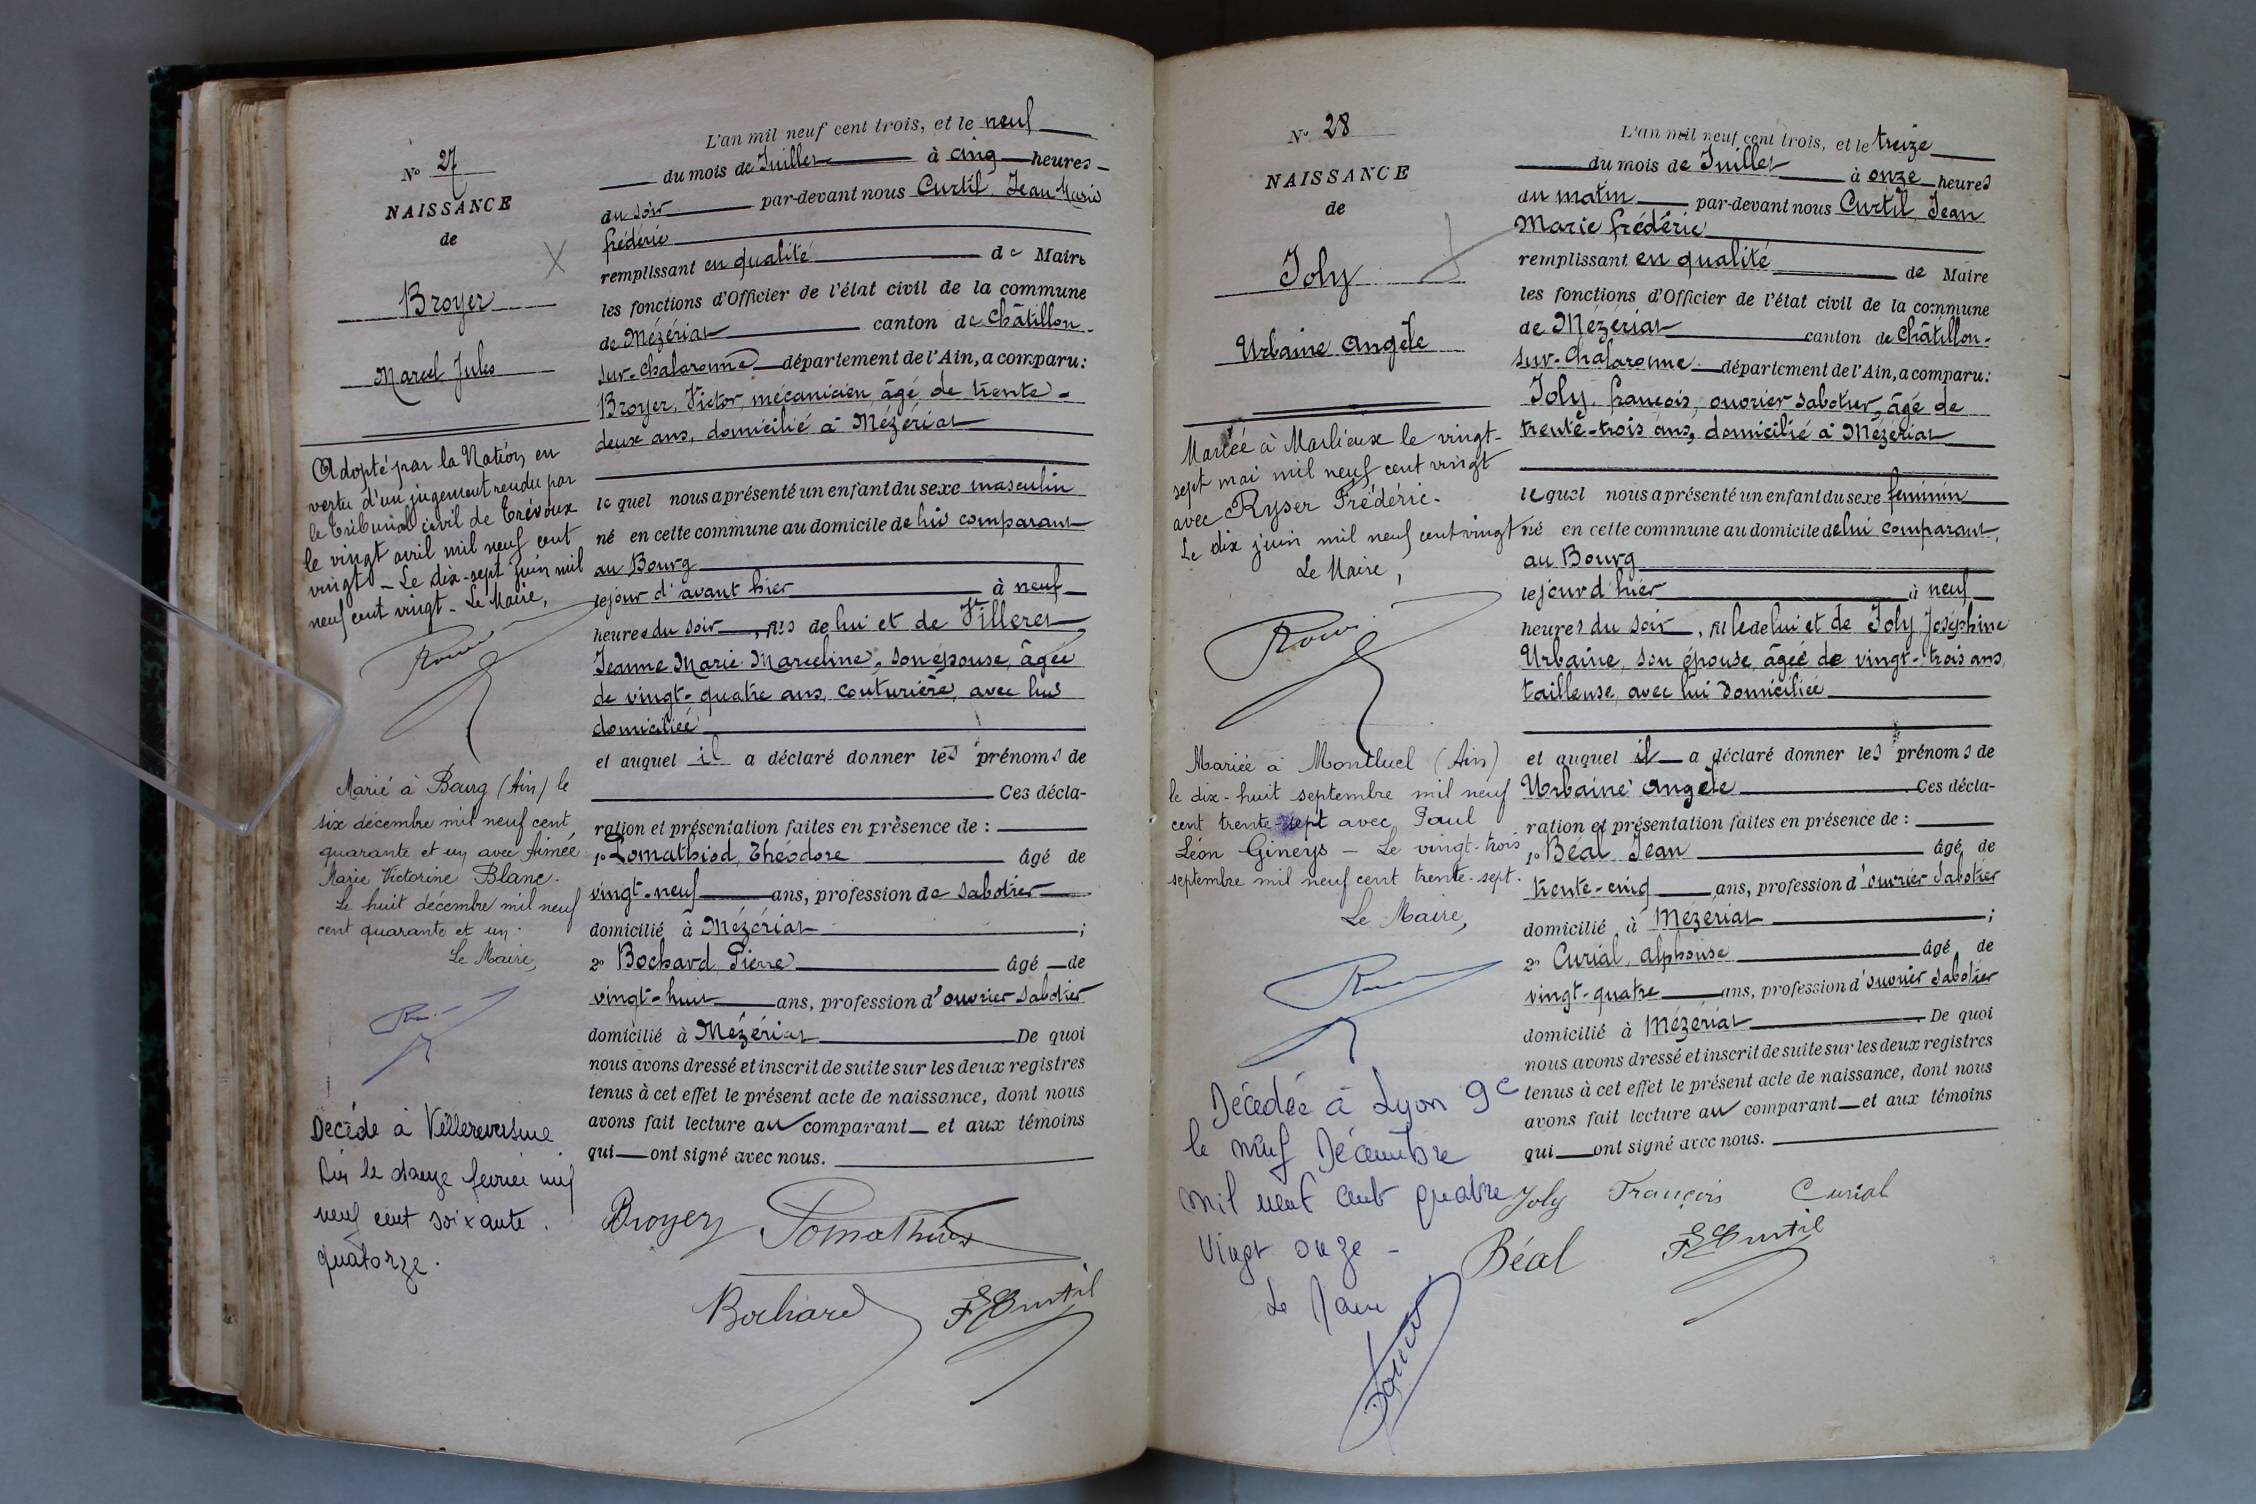 N° 27
NAISSANCE
de
Broyer
Marcel Jules
Adopté par la Nation, en
vertu d'un jugement rendu par
le Tribunal civil de Trévoux
le vingt avril mil neuf cent
vingt - Le dix-sept juin mil
neuf cent vingt - Le Maire,
Marié à Bourg (Ain) le
six décembre mil neuf cent
quarante et un avec Aimée
Marie Victorine Blanc.
Le huit décembre mil neuf
cent quarante et un.
Le Maire,
Décédé à Villereversure
Ain le douze fevrier mil
neuf cent soixante
quatorze.
L'an mil neuf cent trois, et le neuf
du mois de Juillet à cinq heures
du soir par-devant nous Curtil, Jean Marie
frédéric
remplissant en qualité de Maire
les fonctions d'Officier de l'état civil de la commune
de Mézériat canton de Châtillon-
sur-Chalaronne département de l'Ain, a comparu:
Broyer, Victor, mécanicien, âgé de trente-
deux ans, domicilié à Mézériat
lequel nous a présenté un enfant du sexe masculin
né en cette commune au domicile de lui comparant
au Bourg
le jour d'avant hier à neuf
heures du soir, fils de lui et de Villeret
Jeanne Marie Marceline, son épouse, âgée
de vingt-quatre ans, couturière, avec lui
domiciliée
et auquel il a déclaré donner les prénoms de
Ces décla-
ration et présentation faites en présence de :
1° Lomathiod, Théodore âgé de
vingt-neuf ans, profession de sabotier
domicilié à Mézériat ;
2° Bochard, Pierre âgé de
vingt-huit ans, profession d'ouvrier sabotier
domicilié à Mézériat De quoi
nous avons dressé et inscrit de suite sur les deux registres
tenus à cet effet le présent acte de naissance, dont nous
avons fait lecture au comparant et aux témoins
qui ont signé avec nous.
Broyer
Bochard F Curtil
N° 28
NAISSANCE
de
Joly
Urbaine Angèle
Mariée à Marlieux le vingt-
sept mai mil neuf cent vingt
avec Ryser Frédéric.
Le dix juin mil neuf cent vingt
Le Maire,
Mariée à Montluel (Ain)
le dix-huit septembre mil neuf
cent trente-sept avec Paul
Léon Gineys - Le vingt-trois
septembre mil neuf cent trente-sept.
Le Maire,
Décédée à Lyon 9e
le neuf Décembre
mil neuf cent quatre
vingt onze -
Le Maire
L'an mil neuf cent trois, et le treize
du mois de Juillet à onze heures
du matin par-devant nous Curtil, Jean
Marie frédéric
remplissant en qualité de Maire
les fonctions d'Officier de l'état civil de la commune
de Mézériat canton de Châtillon-
sur-Chalaronne département de l'Ain, a comparu:
Joly, françois, ouvrier sabotier, âgé de
trente-trois ans, domicilié à Mézériat
lequel nous a présenté un enfant du sexe feminin
né en cette commune au domicile de lui comparant,
au Bourg
le jour d'hier à neuf
heures du soir, fille de lui et de Joly, Joséphine
Urbaine, son épouse, âgée de vingt-trois ans,
tailleuse, avec lui domiciliée
et auquel il a déclaré donner les prénoms de
Urbaine Angèle Ces décla-
ration et présentation faites en présence de :
1° Béal, Jean âgé de
trente-cinq ans, profession d'ouvrier sabotier
domicilié à Mézériat ;
2° Curial, alphonse âgé de
vingt-quatre ans, profession d'ouvrier sabotier
domicilié à Mézériat De quoi
nous avons dressé et inscrit de suite sur les deux registres
tenus à cet effet le présent acte de naissance, dont nous
avons fait lecture au comparant et aux témoins
qui ont signé avec nous.
Joly François Curial
Béal F Curtil